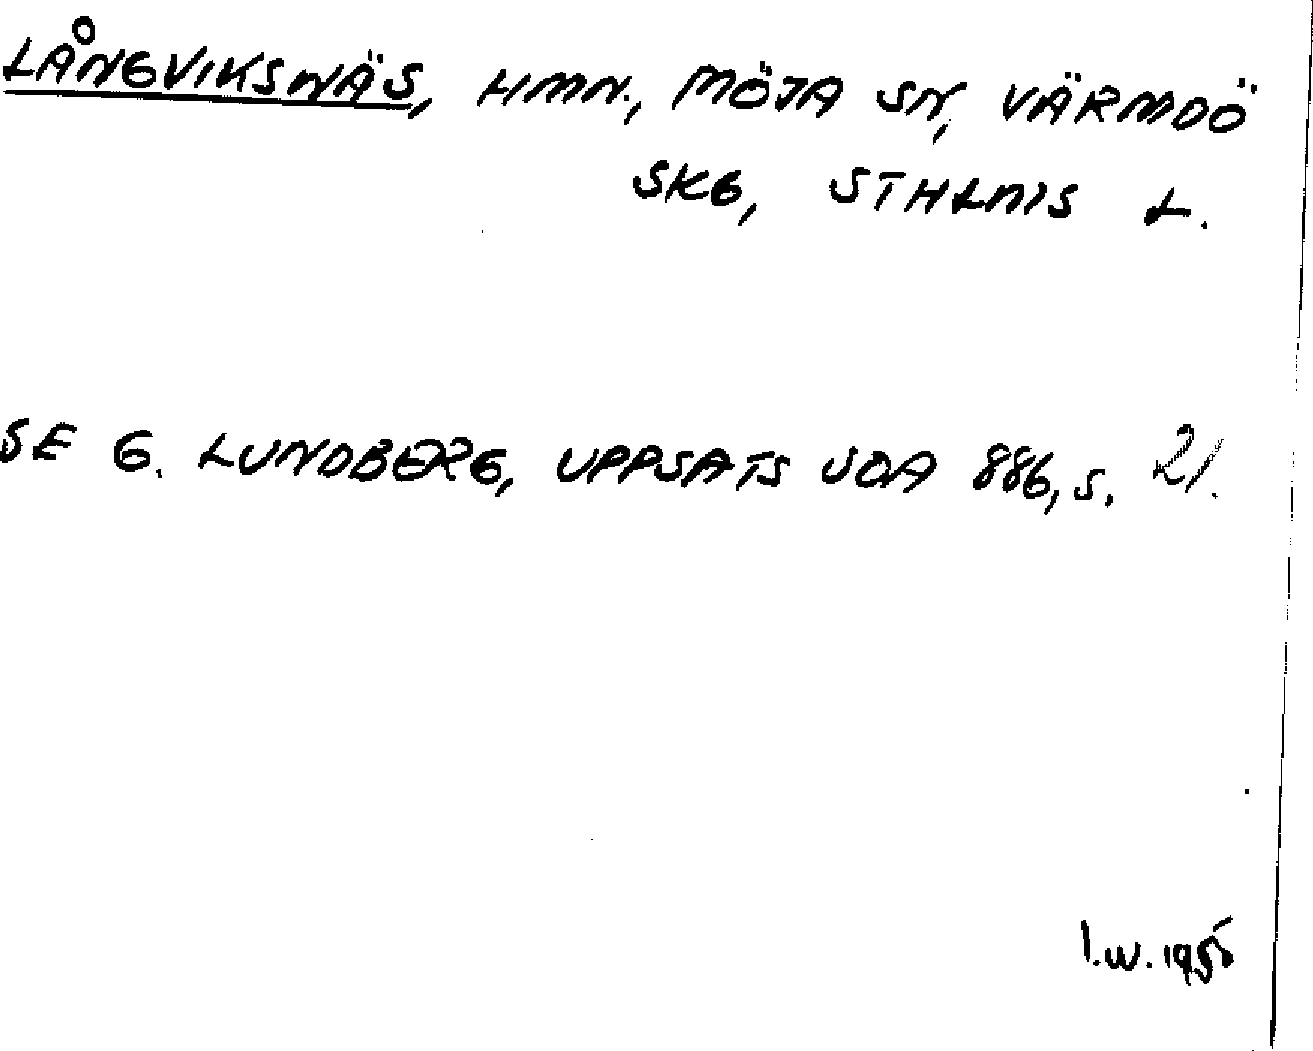 LÅNGVIKSNÄS, HMN., MÖJA SN, VÄRMDÖ
SKG, STHLMS L.
SE G. LUNDBERG, UPPSATS SOA 886, S. 21.
I.W. 1955